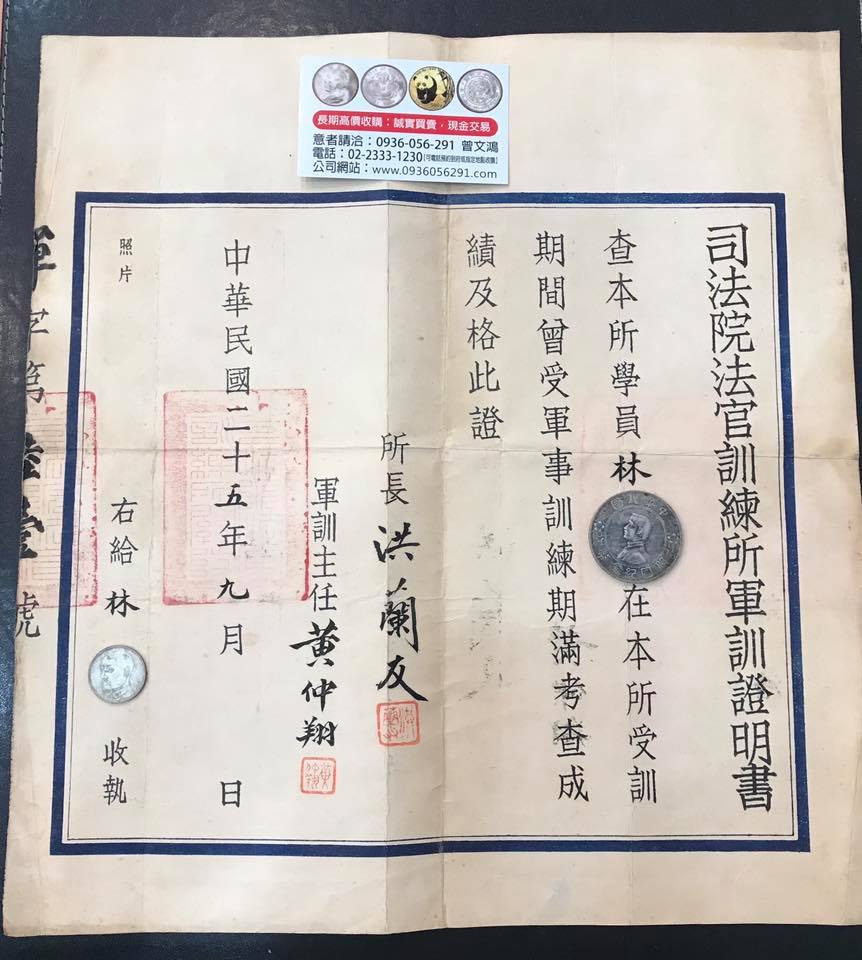 長期高價收購：誠實買賣，現金交易
意者請洽：0936-056-291 曾文鴻
電話：02-2333-1230【可電話預約到府或指定地點收購】
公司網站：www.0936056291.com
司法院法官訓練所軍訓證明書
查本所學員林
在本所受訓
期間曾受軍事訓練期滿考查成
績及格此證
所長 洪蘭友
軍訓主任 黃仲翔
中華民國二十五年九月 日
照片
右給林
收執
軍字第 號